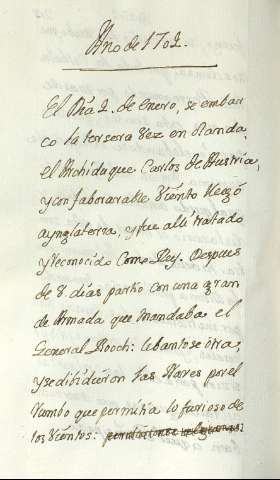 Año de 1702.
El Dia 2. de Enero, se embar
co la tersera vez en Olanda,
el Archiduque Carlos de Austria,
y con faborarable viento llegó
a ynglaterra, y fue alli tratado
y reconocido Como Rey. Despues
de 8. dias partio con una gran
de Armada que mandaba el
General Rooch: lebantose otra,
y se dibidieron las Naves por el
rumbo que permitia lo furioso de
los vientos: